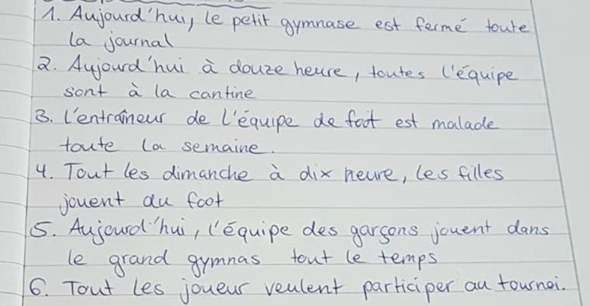 1. Aujourd'hui, le petit gymnase est fermé toute
la journal
2. Aujourd'hui à douze heure, toutes l'équipe
sont à la cantine
3. L'entraîneur de l'équipe de foot est malade
toute la semaine.
4. Tout les dimanche à dix heure, les filles
jouent du foot
5. Aujourd'hui, l'équipe des garçons jouent dans
le grand gymnas tout le temps
6. Tout les joueur veulent participer au tournoi.